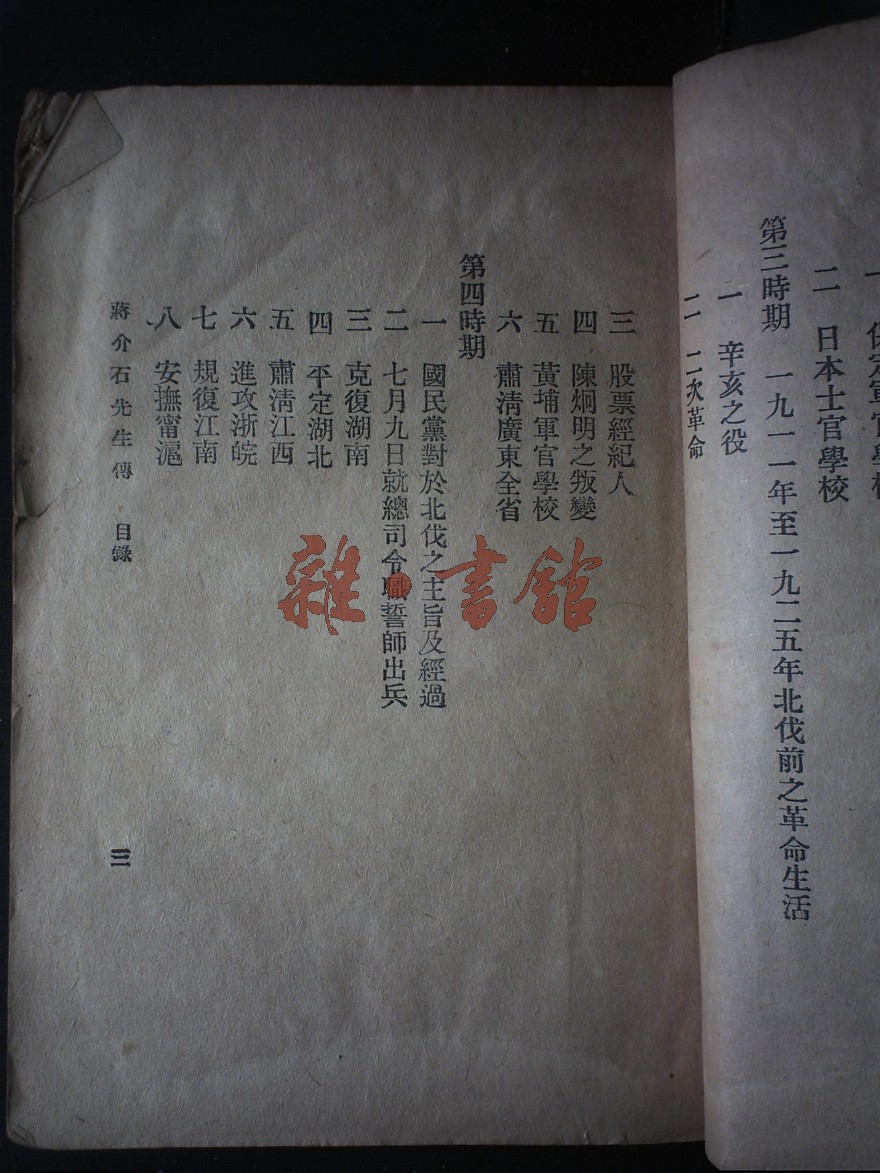 一　保定軍官學校
二　日本士官學校
第三時期　一九一一年至一九二五年北伐前之革命生活
一　辛亥之役
二　二次革命
三　股票經紀人
四　陳烱明之叛變
五　黃埔軍官學校
六　肅清廣東全省
第四時期
一　國民黨對於北伐之主旨及經過
二　七月九日就總司令職誓師出兵
三　克復湖南
四　平定湖北
五　肅清江西
六　進攻浙皖
七　規復江南
八　安撫甯滬
蔣介石先生傳　目錄
三
雜·書館